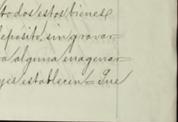 todos estos bienes
epósito, sin gravar
a alguna enagenar
yes establecen. Que